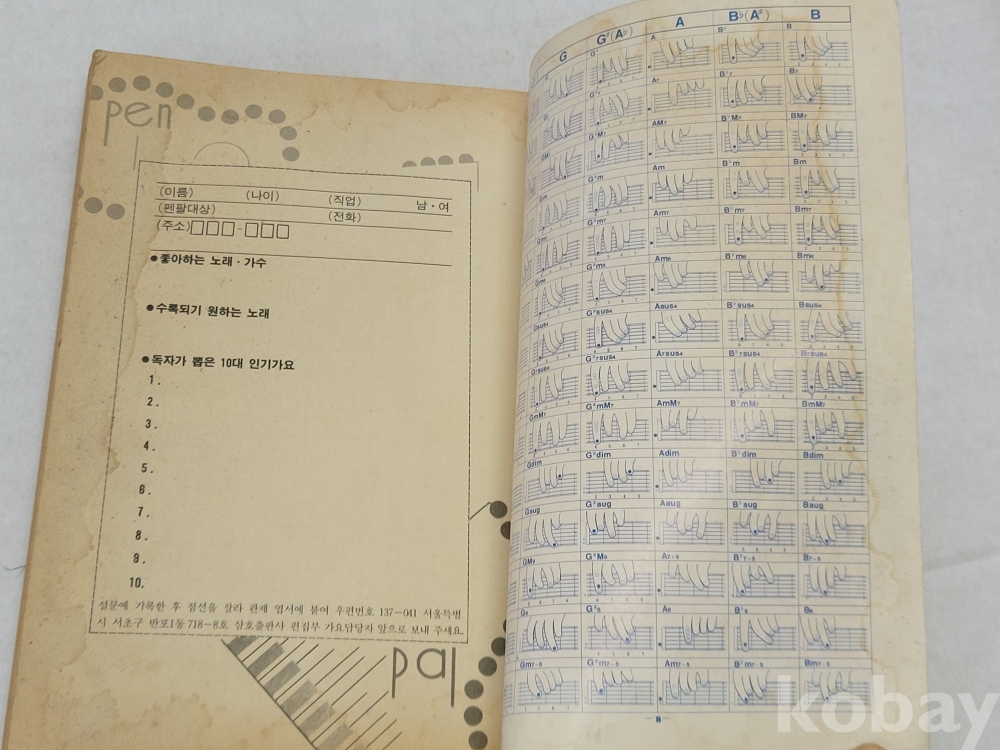 pen
(이름) (나이) (직업) 남·여
(펜팔대상) (전화)
(주소)□□□-□□□
●좋아하는 노래·가수
●수록되기 원하는 노래
●독자가 뽑은 10대 인기가요
1.
2.
3.
4.
5.
6.
7.
8.
9.
10.
설문에 기록한 후 점선을 잘라 관제 엽서에 붙여 우편번호 137-041 서울특별
시 서초구 반포1동 718-8호 삼호출판사 편집부 가요담당자 앞으로 보내 주세요.
pal
G G♯(A♭) A B♭(A♯) B
A B♭ B
G7 A7 B♭7 B7
GM7 G♯M7 AM7 B♭M7 BM7
Gm G♯m Am B♭m Bm
Gm7 G♯m7 Am7 B♭m7 Bm7
Gm6 G♯m6 Am6 B♭m6 Bm6
Gsus4 G♯sus4 Asus4 B♭sus4 Bsus4
G7sus4 G♯7sus4 A7sus4 B♭7sus4 B7sus4
GmM7 G♯mM7 AmM7 B♭mM7 BmM7
Gdim G♯dim Adim B♭dim Bdim
Gaug G♯aug Aaug B♭aug Baug
GM9 G♯M9 A7-5 B♭7-5 B7-5
G6 G♯6 A6 B♭6 B6
Gm7-5 G♯m7-5 Am7-5 B♭m7-5 Bm7-5
kobay